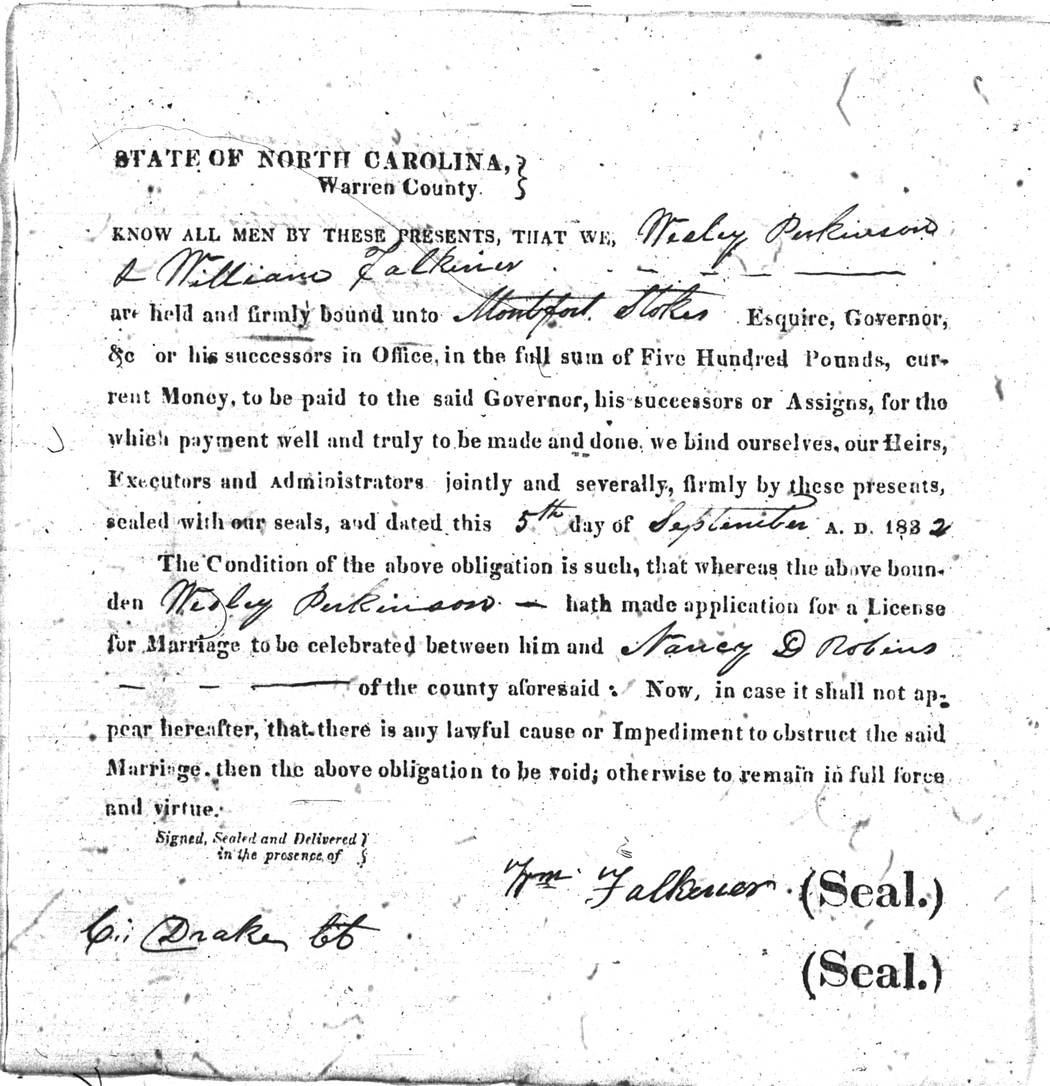 STATE OF NORTH CAROLINA,
Warren County.
KNOW ALL MEN BY THESE PRESENTS, THAT WE, Wesley Perkinson
& William Falkiner
are held and firmly bound unto Montfort Stokes Esquire, Governor,
&c or his successors in Office, in the full sum of Five Hundred Pounds, cur-
rent Money, to be paid to the said Governor, his successors or Assigns, for the
which payment well and truly to be made and done, we bind ourselves, our Heirs,
Executors and Administrators jointly and severally, firmly by these presents,
sealed with our seals, and dated this 5th day of September A. D. 1832
The Condition of the above obligation is such, that whereas the above boun-
den Wesley Perkinson — hath made application for a License
for Marriage to be celebrated between him and Nancy D Robins
— — — of the county aforesaid: Now, in case it shall not ap-
pear hereafter, that there is any lawful cause or Impediment to obstruct the said
Marriage, then the above obligation to be void; otherwise to remain in full force
and virtue.
Signed, Sealed and Delivered
in the presence of
Wm Falkener (Seal.)
Drake
(Seal.)